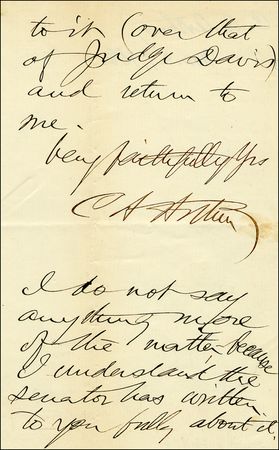 to it (over that
of Judge Davis)
and return to
me.
Very faithfully Yrs
C A Arthur
I do not say
anything more
of the matter because
I understand the
senator has written
to you fully about it.